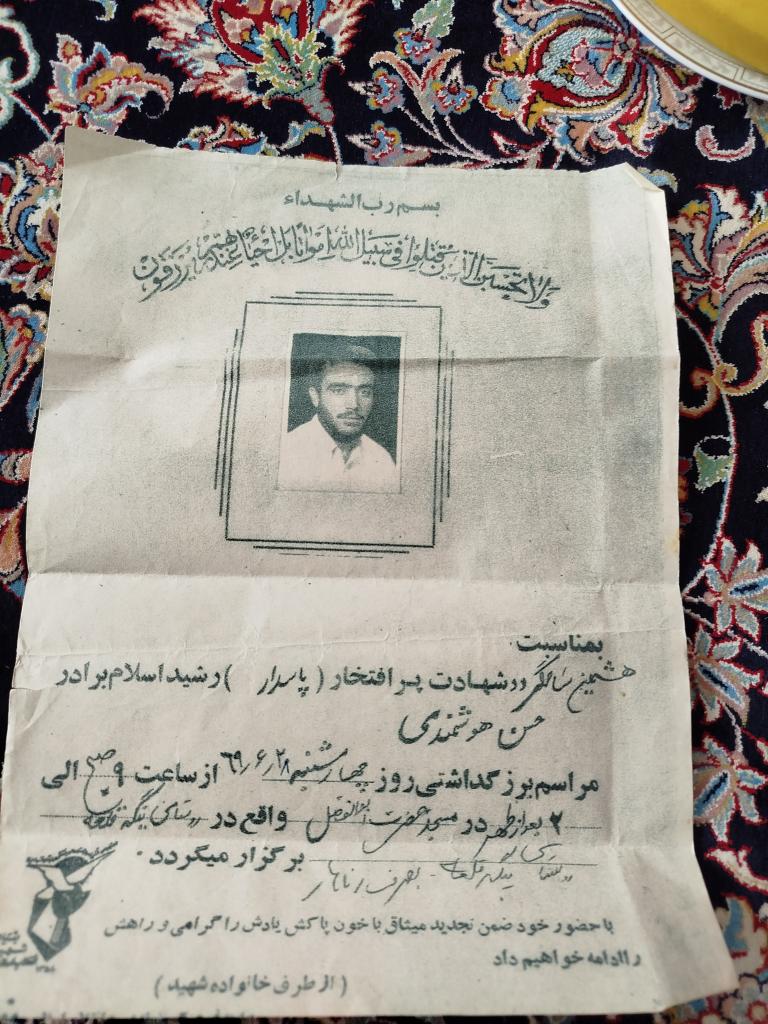 بسم رب الشهداء
ولا تحسبن الذین قتلوا فی سبیل الله امواتا بل احیاء عند ربهم یرزقون
بمناسبت
هشتمین سالگرد شهادت پر افتخار ( پاسدار ) رشید اسلام برادر
حسن هوشمندی
مراسم بزرگداشتی روز چهارشنبه ۶۹٫۶٫۲۸ از ساعت ۹ صبح الی
۲ بعد از ظهر در مسجد حضرت ابوالفضل واقع در روستای ینگه قلعه
روستای ینگه قلعه بصرف ناهار برگزار میگردد .
با حضور خود ضمن تجدید میثاق با خون پاکش یادش را گرامی و راهش
را ادامه خواهیم داد
( از طرف خانواده شهید )